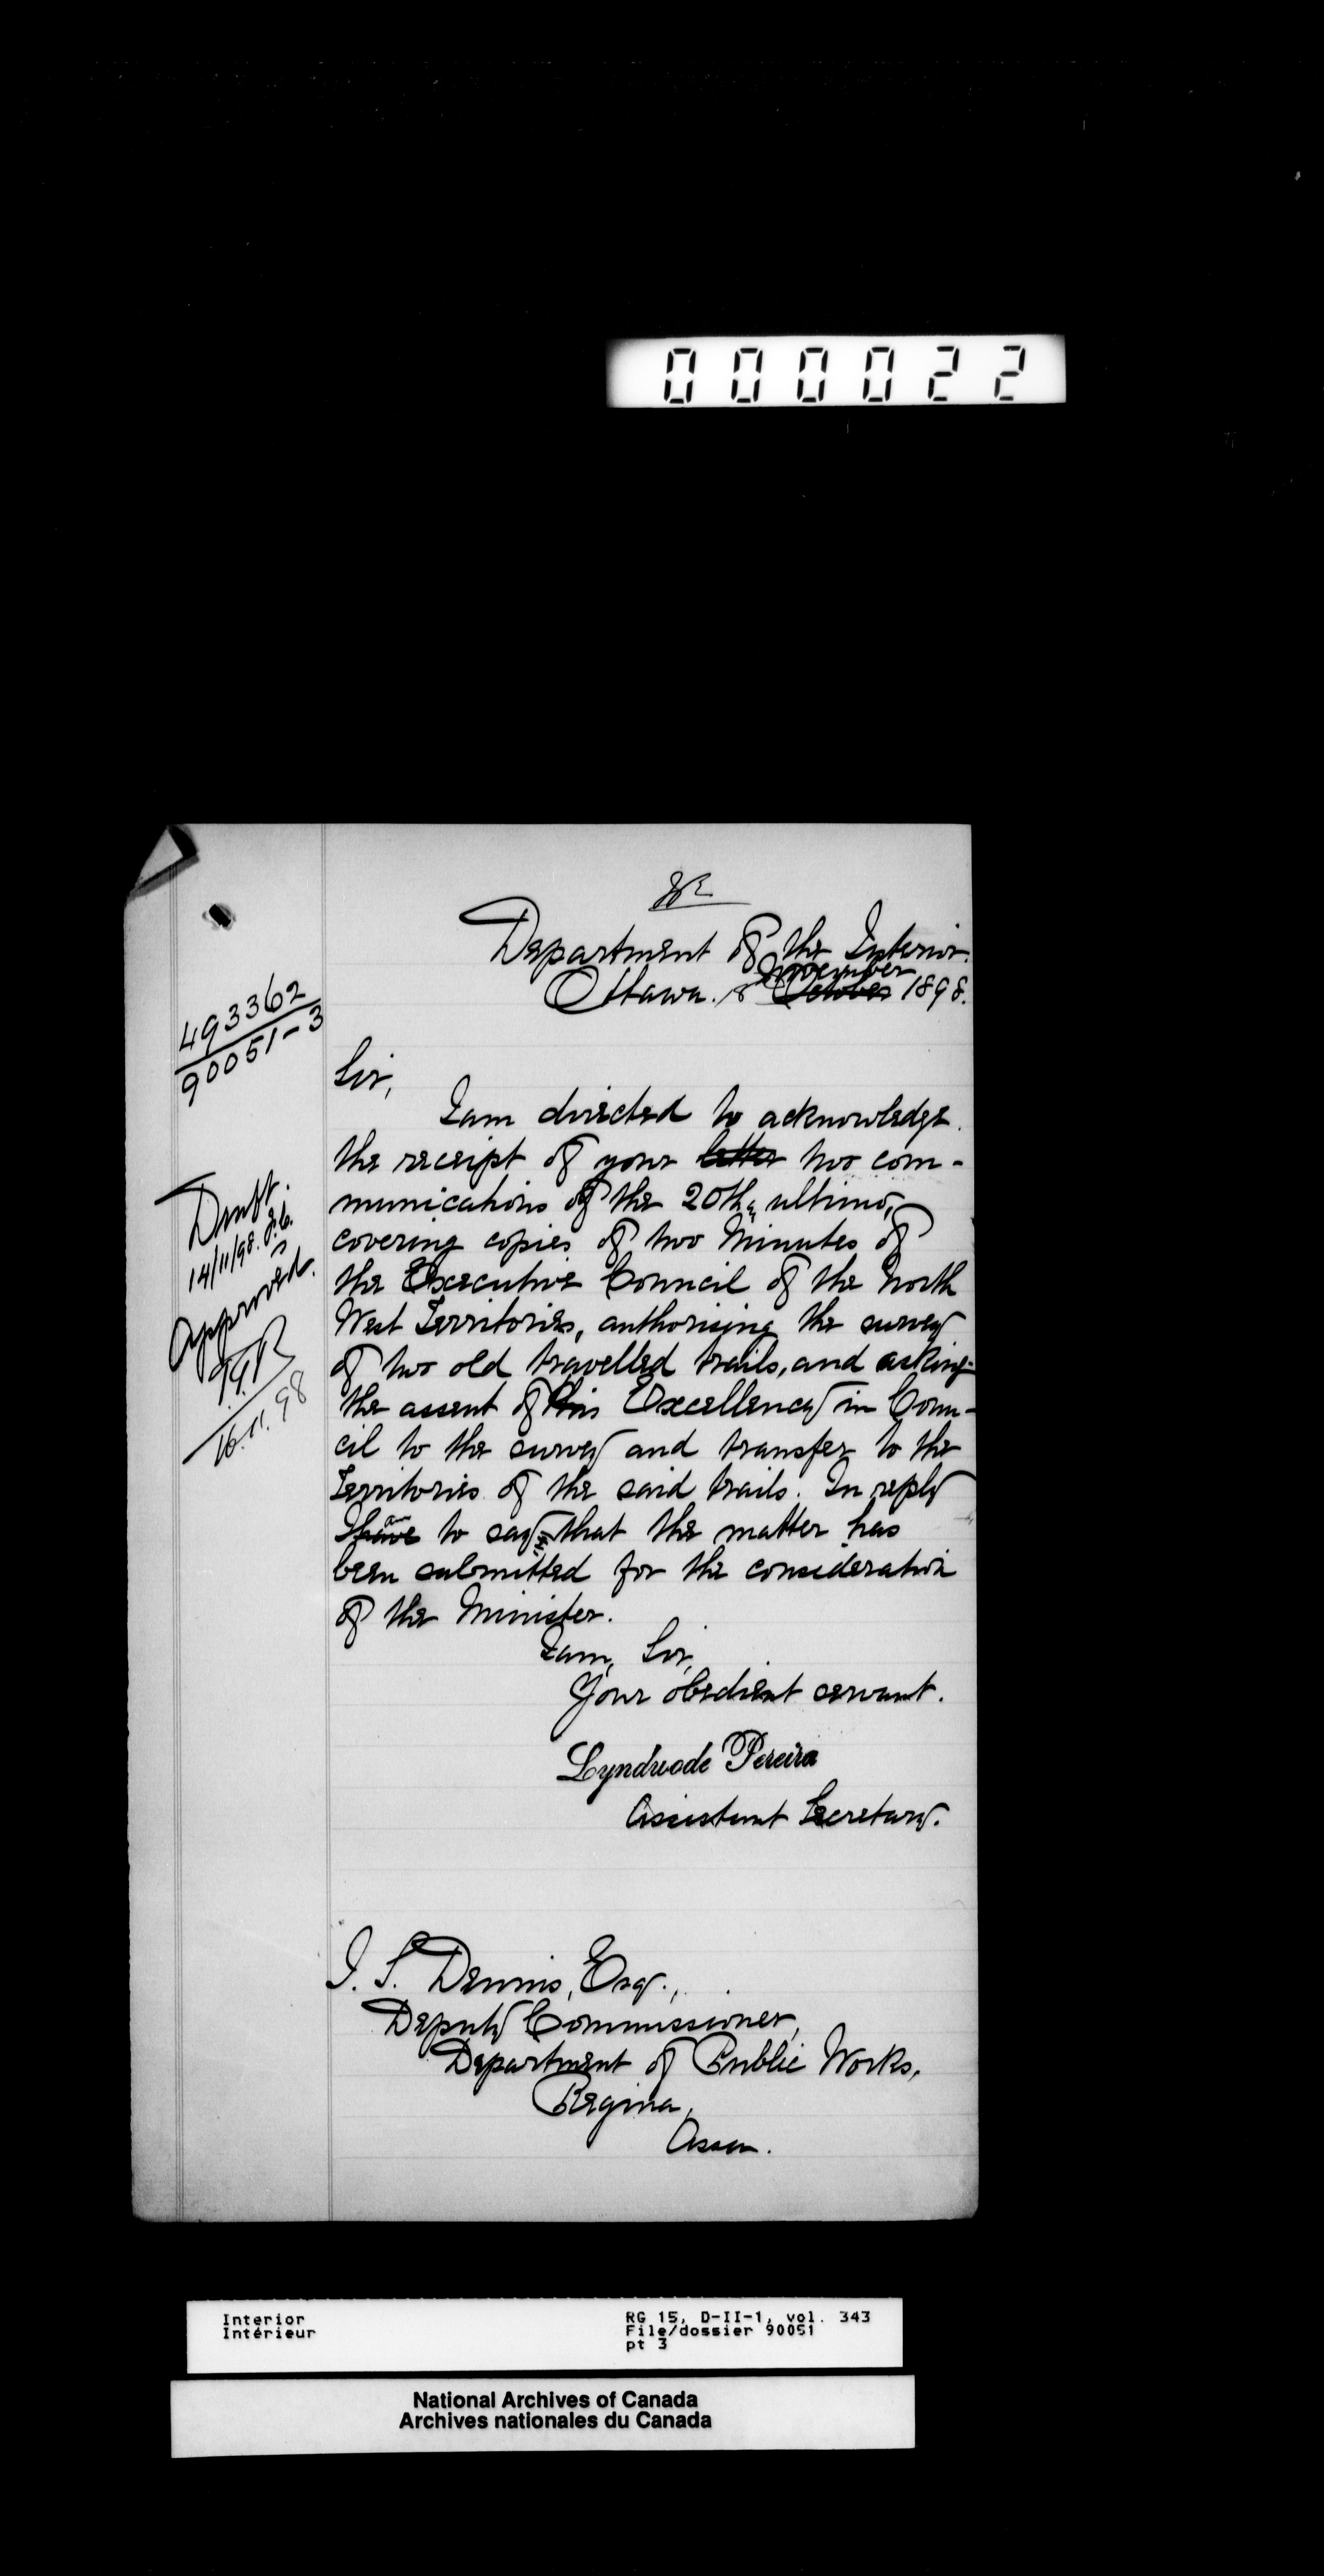 000022
Department of the Interior.
November
Ottawa. 18 October 1898.
493362
90051-3
Sir,
I am directed to acknowledge
the receipt of your letter two com-
munications of the 20th ultimo,
covering copies of two Minutes of
the Executive Council of the North
West Territories, authorising the survey
of two old travelled trails, and asking
the assent of His Excellency in Coun-
cil to the survey and transfer to the
Territories of the said trails. In reply
I have to say that the matter has
been submitted for the consideration
of the Minister.
Draft.
14/11/98.
Approved.
16.11.98
I am, Sir,
Your obedient servant.
Lyndwode Pereira
Assistant Secretary.
J. S. Dennis, Esq.,
Deputy Commissioner,
Department of Public Works,
Regina,
Assa.
Interior
Intérieur
RG 15, D-II-1, vol. 343
File/dossier 90051
pt 3
National Archives of Canada
Archives nationales du Canada